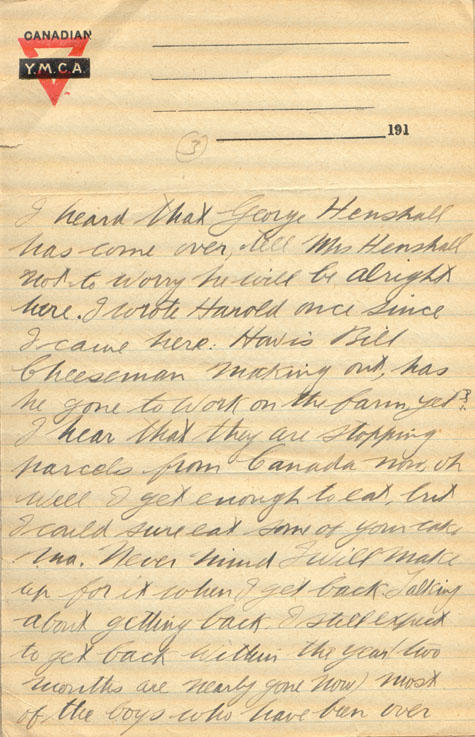 CANADIAN
Y.M.C.A.
191
3
I heard that George Henshall
has come over, tell Mrs Henshall
not to worry he will be alright
here. I wrote Harold once since
I came here. How is Bill
Cheeseman making out, has
he gone to work on the farm yet?
I hear that they are stopping
parcels from Canada now, oh
well I get enough to eat, but
I could sure eat some of your cake
ma. Never mind I will make
up for it when I get back. Talking
about getting back. I still expect
to get back within the year (two
months are nearly gone now) most
of the boys who have been over